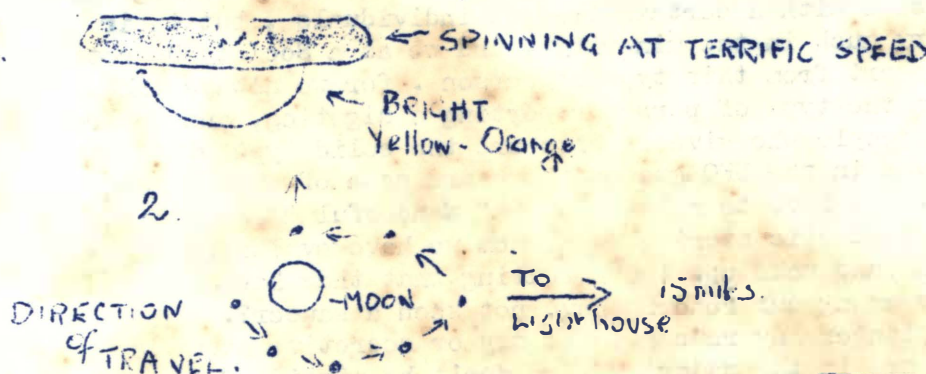 SPINNING AT TERRIFIC SPEED
BRIGHT
Yellow-Orange
2.
DIRECTION
of TRAVEL.
-MOON
TO
Lighthouse
15 miles.